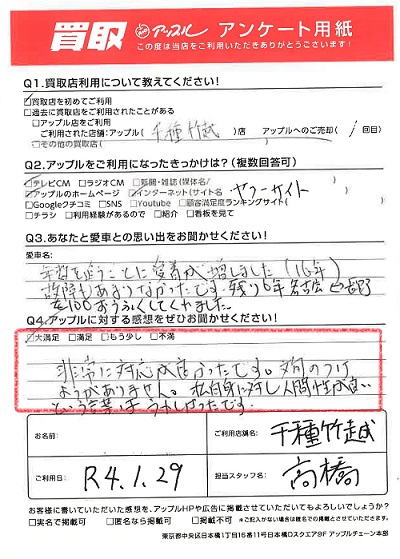 買取 アップル アンケート用紙
この度は当店をご利用いただきありがとうございます!
Q1.買取店利用について教えてください!
☑買取店を初めてご利用
□過去に買取店をご利用されたことがある
□アップル店をご利用
ご利用された店舗:アップル(千種竹越)店 アップルへのご売却(1回目)
□その他の買取店(
Q2.アップルをご利用になったきっかけは?(複数回答可)
☑テレビCM □ラジオCM □新聞・雑誌(媒体名/
☑アップルのホームページ ☑インターネット(サイト名 ヤフーサイト
□Googleクチコミ □SNS □Youtube □顧客満足度ランキングサイト(
□チラシ □利用経験があるので □紹介 □看板を見て
Q3.あなたと愛車との思い出をお聞かせください!
愛車名:
年数を追うごとに愛着が増しました(16年)
故障もあまりなかったです。残り6年名古屋
Q4.アップルに対する感想をぜひお聞かせください!
☑大満足 □満足 □もう少し □不満
非常に対応が良かったです。文句のつけ
ようがありません。私自身に対し人間性が良い
という言葉はうれしかったです。
お名前:
ご利用店舗名: 千種竹越
ご利用日: R4.1.29
担当スタッフ名: 高橋
お客様に書いていただいた感想を、アップルHPや広告に掲載させていただいてもよろしいでしょうか?
□実名で掲載可 □匿名なら掲載可 □掲載不可 *ご記入がない場合は匿名での掲載とさせていただきます。
東京都中央区日本橋1丁目16番11号日本橋Dスクエア9F アップルチェーン本部